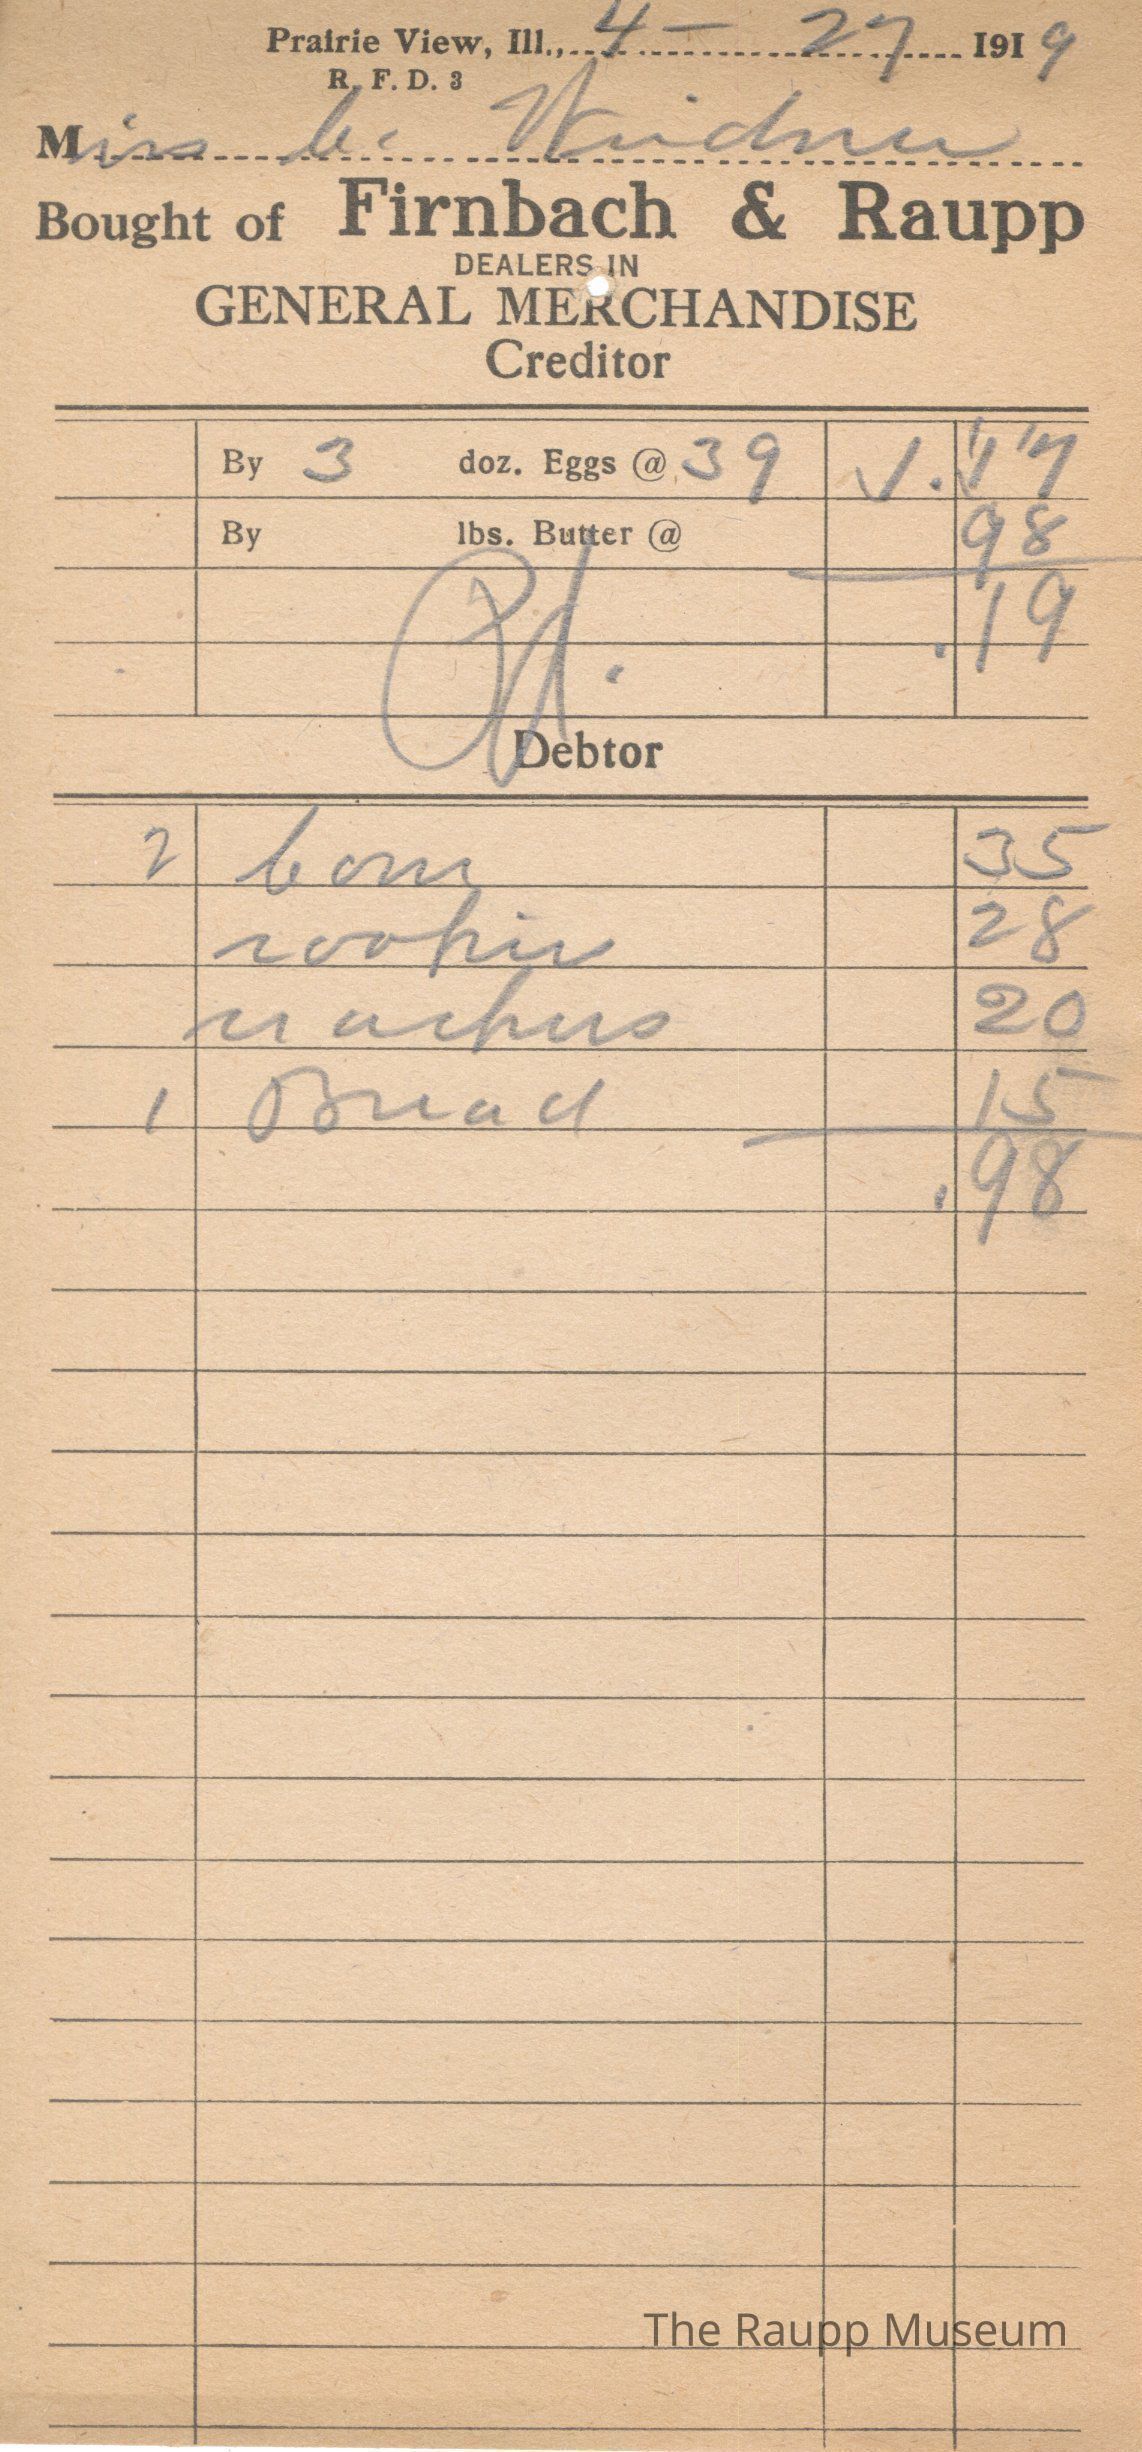 Prairie View, Ill., 4 - 27 1919
R. F. D. 3
Miss C. Weidner
Bought of Firnbach & Raupp
DEALERS IN
GENERAL MERCHANDISE
Creditor
By 3 doz. Eggs @ 39 1.17
By lbs. Butter @ 98
.19
Pd.
Debtor
2 Corn 35
cookies 28
crackers 20
1 Bread 15
.98
The Raupp Museum